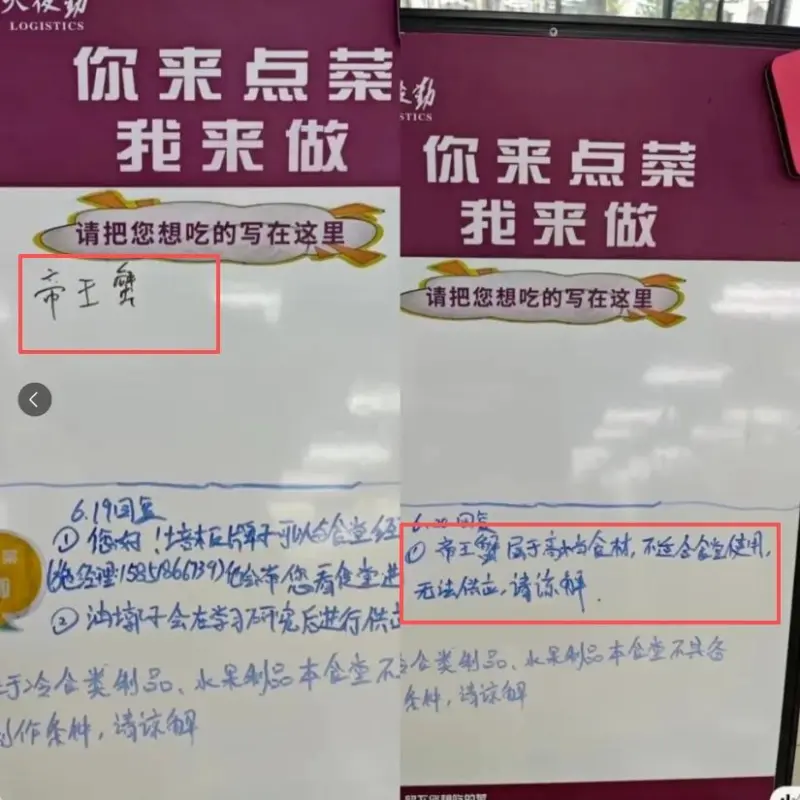 LOGISTICS
你来点菜
我来做
请把您想吃的写在这里
帝王蟹
6.19回复
① 您好！
② 油墩子会在学习研究后进行供应
冷食类制品、水果制品本食堂不
作条件，请谅解
勤
STICS
你来点菜
我来做
请把您想吃的写在这里
回复
① 帝王蟹属于高档食材，不适合食堂使用，
无法供应，请谅解.
食类制品、水果制品本食堂不具备
条件，请谅解